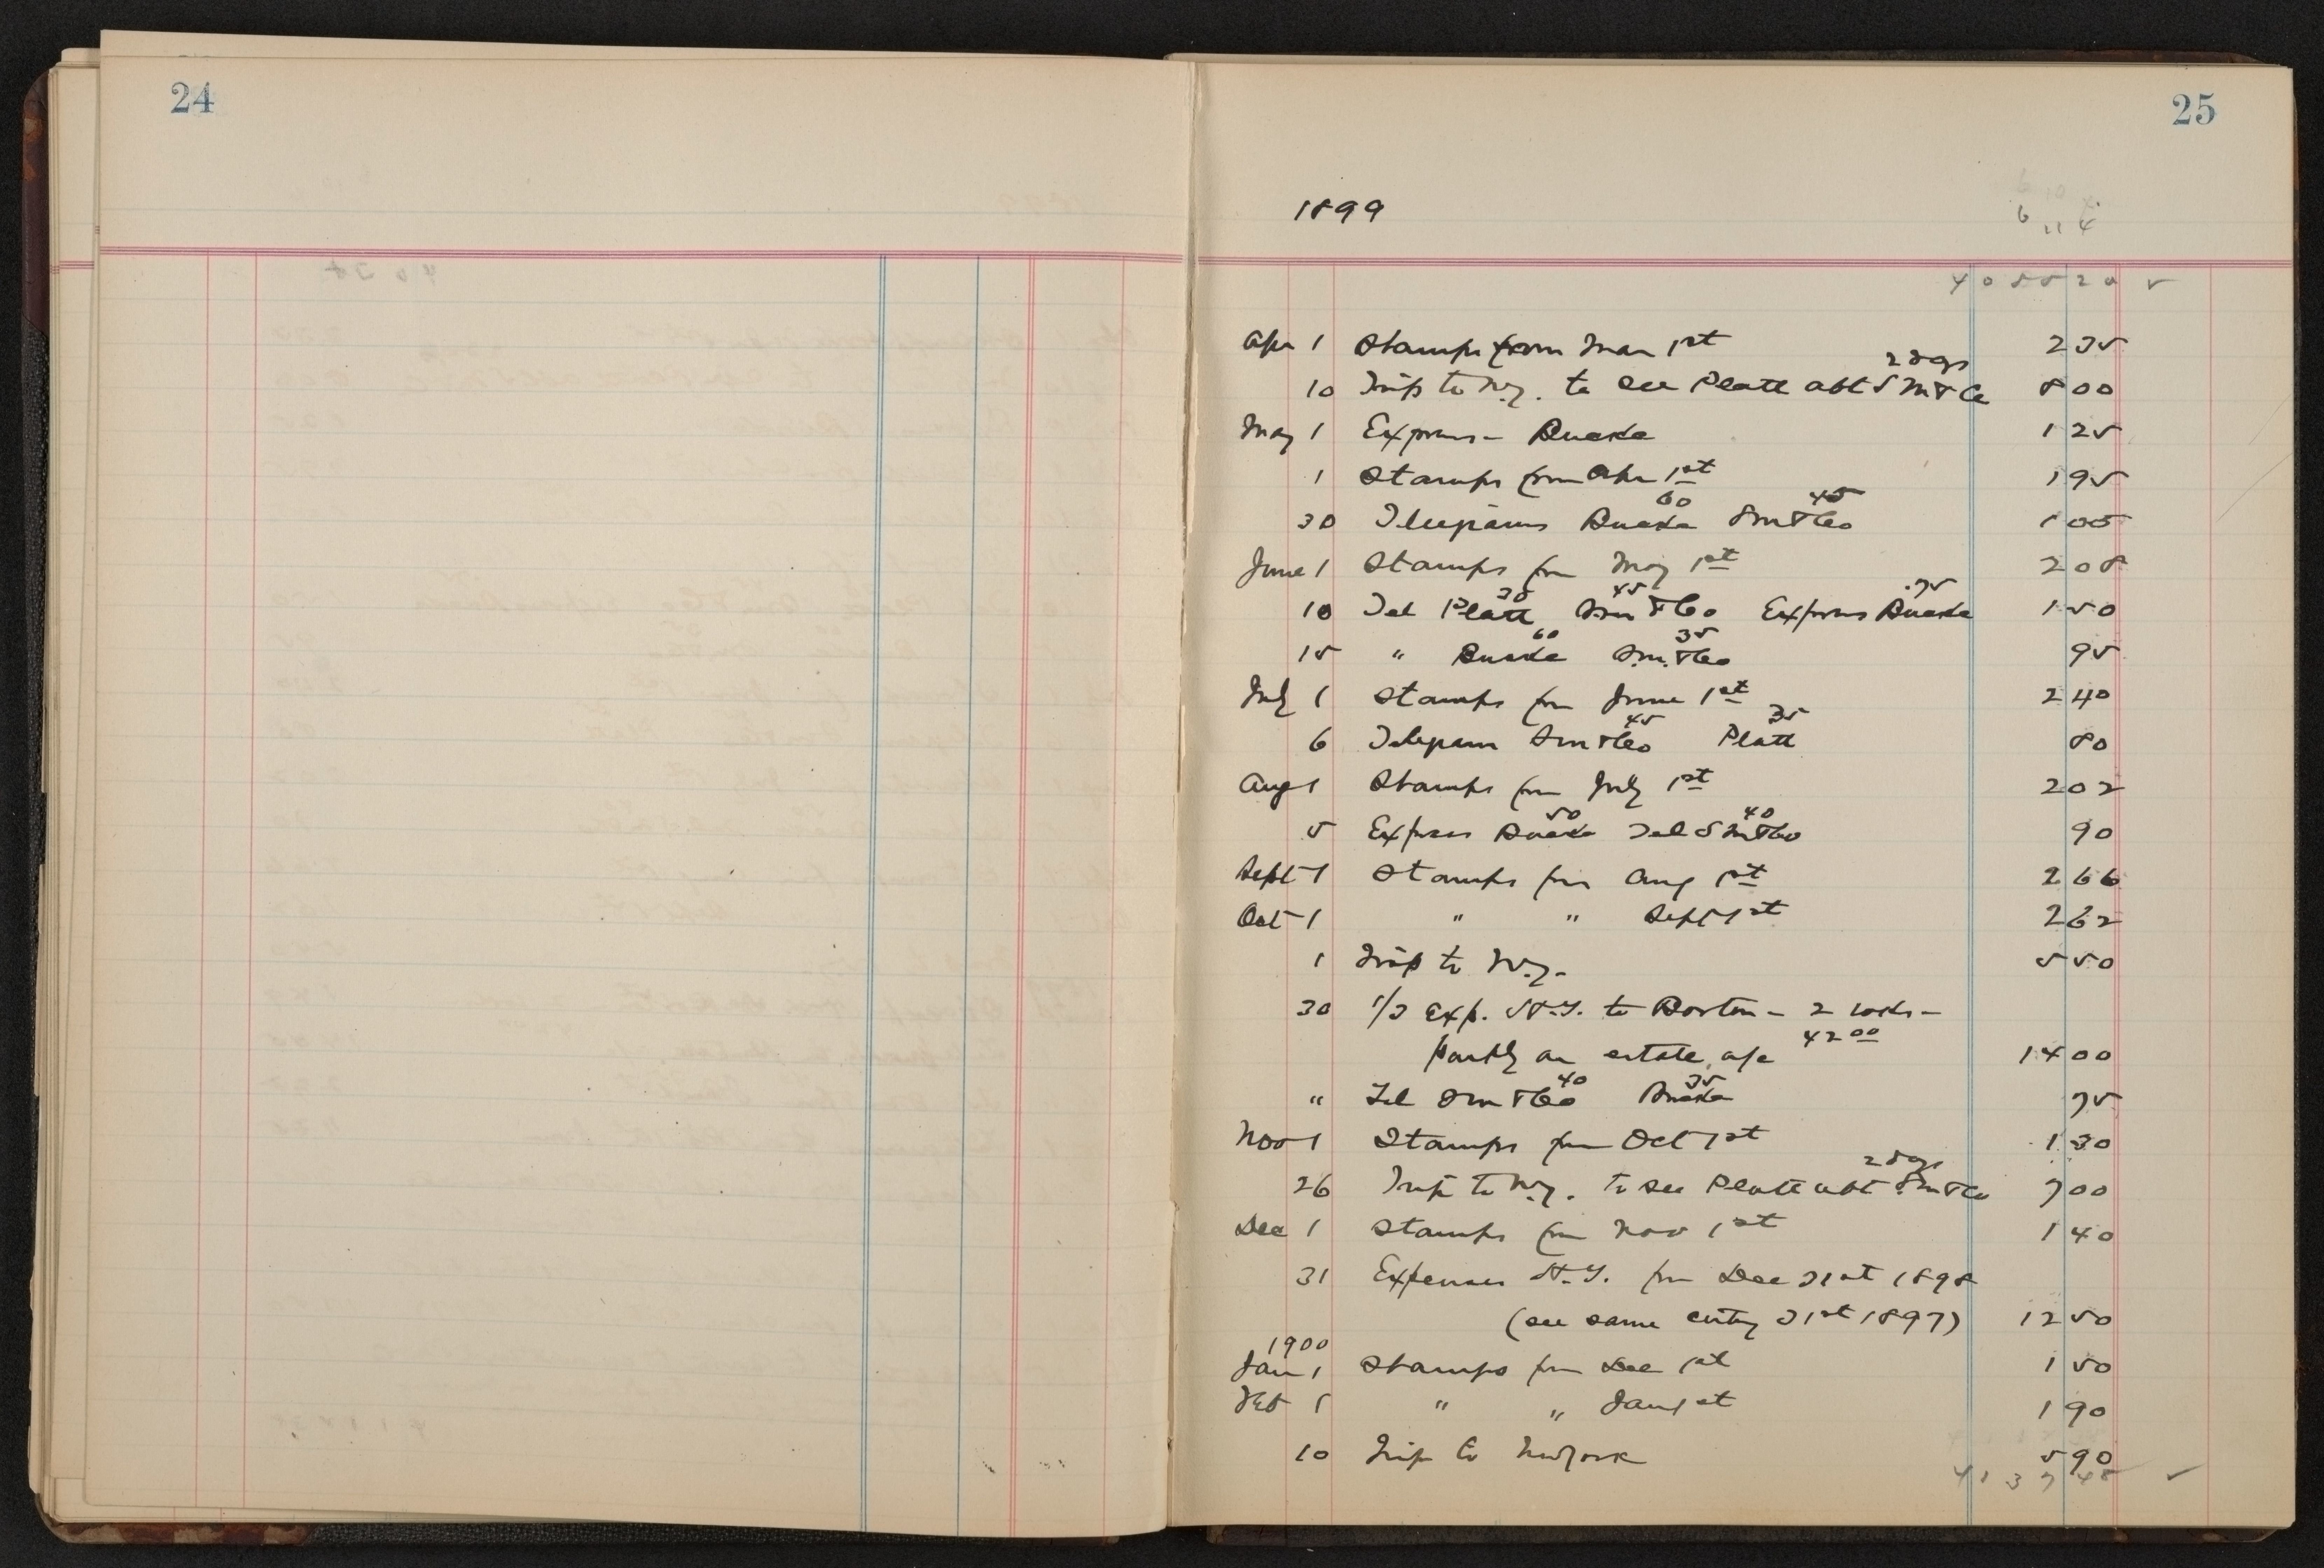 24
25
1899
4055 20
Apr 1 Stamps from Mar 1st 2 35
2 dys
10 Trip to N.Y. to see Platt abt S M & Co 8 00
May 1 Express - 1 25
1 Stamps from Apr 1st 1 95
60 45
30 Telegrams S M & Co 1 05
June 1 Stamps from May 1st 2 08
30 45 .75
10 Tel Platt S M & Co Express 1 50
60 35
15 " S.M. & Co 95
July 1 Stamps from June 1st 2 40
45 35
6 Telegram S M & Co Platt 80
Aug 1 Stamps from July 1st 2 02
50 40
5 Express Tel S M & Co 90
Sept 1 Stamps from Aug 1st 2 66
Oct 1 " " Sept 1st 2 62
1 Trip to N.Y. 5 50
30 1/3 Exp. N.Y. to Boston - 2 wks -
partly on estate a/c 42 00 14 00
40 35
" Tel S M & Co 75
Nov 1 Stamps from Oct 1st 1 30
2 dys
26 Trip to N.Y. to see Platt abt S M & Co 7 00
Dec 1 Stamps from Nov 1st 1 40
31 Expenses N.Y. from Dec 31st 1898
(see same entry 31st 1897) 12 50
1900
Jan 1 Stamps from Dec 1st 1 50
Feb 1 " " Jany 1st 1 90
10 Trip to New York 5 90
4137 48